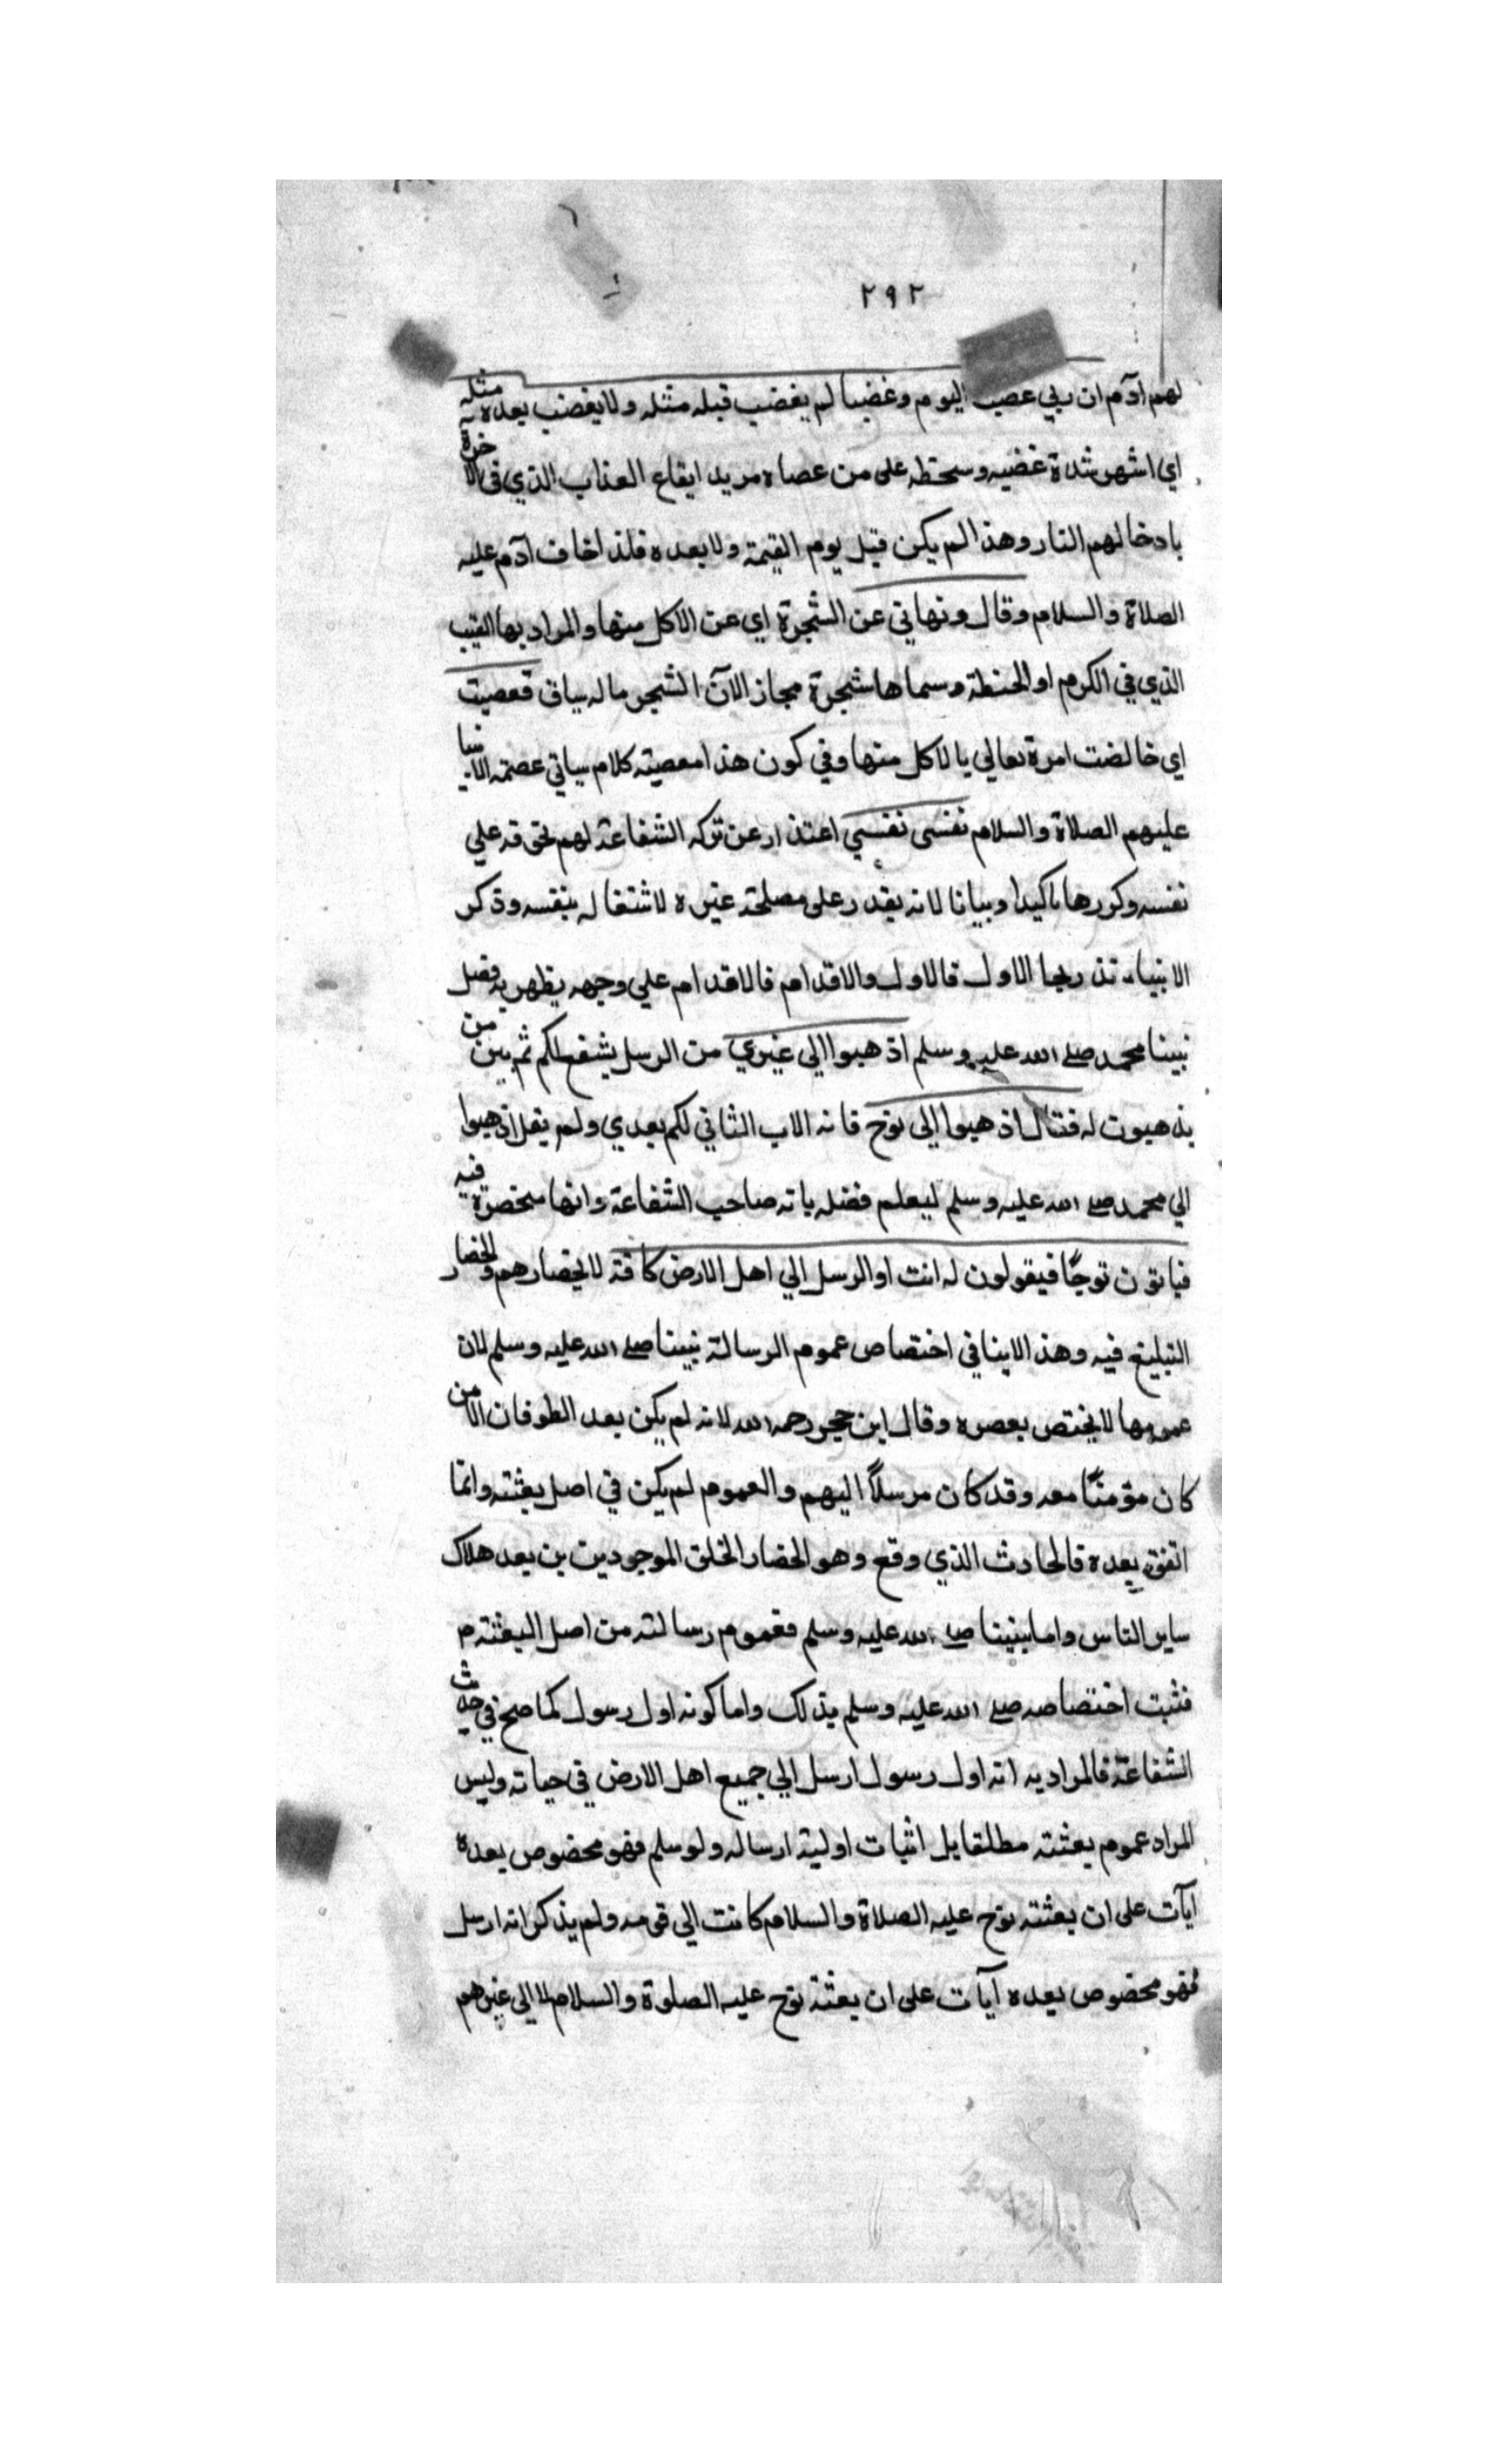 ٢٩٢
لهم ادٓم ان ربي غضب اليوم وغضبا لم يغضب قبله مثله ولا يغضب بعده مثله
اي اشهر شدة غضبه وسخطه على من عصاه مريد ايقاع العذاب الذي في الاخرة
بادخالهم النار وهذا لم يكن قبل يوم القيمة ولا بعده فلذا خاف ادٓم عليه
الصلاة والسلام وقال ونهاني عن الشجرة اي عن الاكل منها والمراد بها العنب
الذي في الكرم او الحنطة وسماها شجرة مجاز الانٓ الشجر ما له ساق فعصيت
اي خالفت امرة تعالي بالاكل منها وفي كون هذا معصيته كلام سياتي عصمة الانبيا
عليهم الصلاة والسلام نفسى نفسي اعتذار عن تركه الشفاعة لهم بخوفه علي
نفسه وكررها تاكيدا وبيانا لانه يقدر على مصلحة غيره لاشتغاله بنفسه وذكر
الانبياء تدرجا الاول فالاول والاقدام فالاقدام علي وجهه يظهر به فضل
نبينا محمد صلى الله عليه وسلم اذهبوا الي غيري من الرسل يشفع لكم ثم بين من
يذهبون له فقال اذهبوا الي نوح فانه الاب الثاني لكم بعدي ولم يقل اذهبوا
الي محمد صلى الله عليه وسلم ليعلم فضله بانه صاحب الشفاعة وانها منحصرة فيه
فياتون نوحًا فيقولون له انت اوالرسل الي اهل الارض كافة لانحصارهم وانحصار
التبليغ فيه وهذا لاينافي اختصاص عموم الرسالة نبينا صلى الله عليه وسلم لان
عمومها لا يختص بعصره وقال ابن حجر رحمه الله لانه لم يكن بعد الطوفان الا من
كان مؤمنًا معه وقد كان مرسلاً اليهم والعموم لم يكن في اصل بعثته وانما
اتفق بعده فالحادث الذي وقع وهو انحصار الخلق الموجودين بن بعد هلاك
ساير الناس واما نبينا صلى الله عليه وسلم فعموم رسالته من اصل البعثة م
فثبت اختصاصه صلى الله عليه وسلم بذلك واما كونه اول رسول كما صح في حديث
الشفاعة فالمراد به انه اول رسول ارسل الي جميع اهل الارض في حياته وليس
المراد عموم بعثته مطلقا بل اثبات اولية ارساله ولو سلم فهو مخصوص بعده
ايٓات على ان بعثته نوح عليه الصلاة والسلام كانت الي قومه ولم يذكر انه ارسل
فهو مخصوص بعده ايٓات على ان بعثة نوح عليه الصلوة والسلام لا الى غيرهم